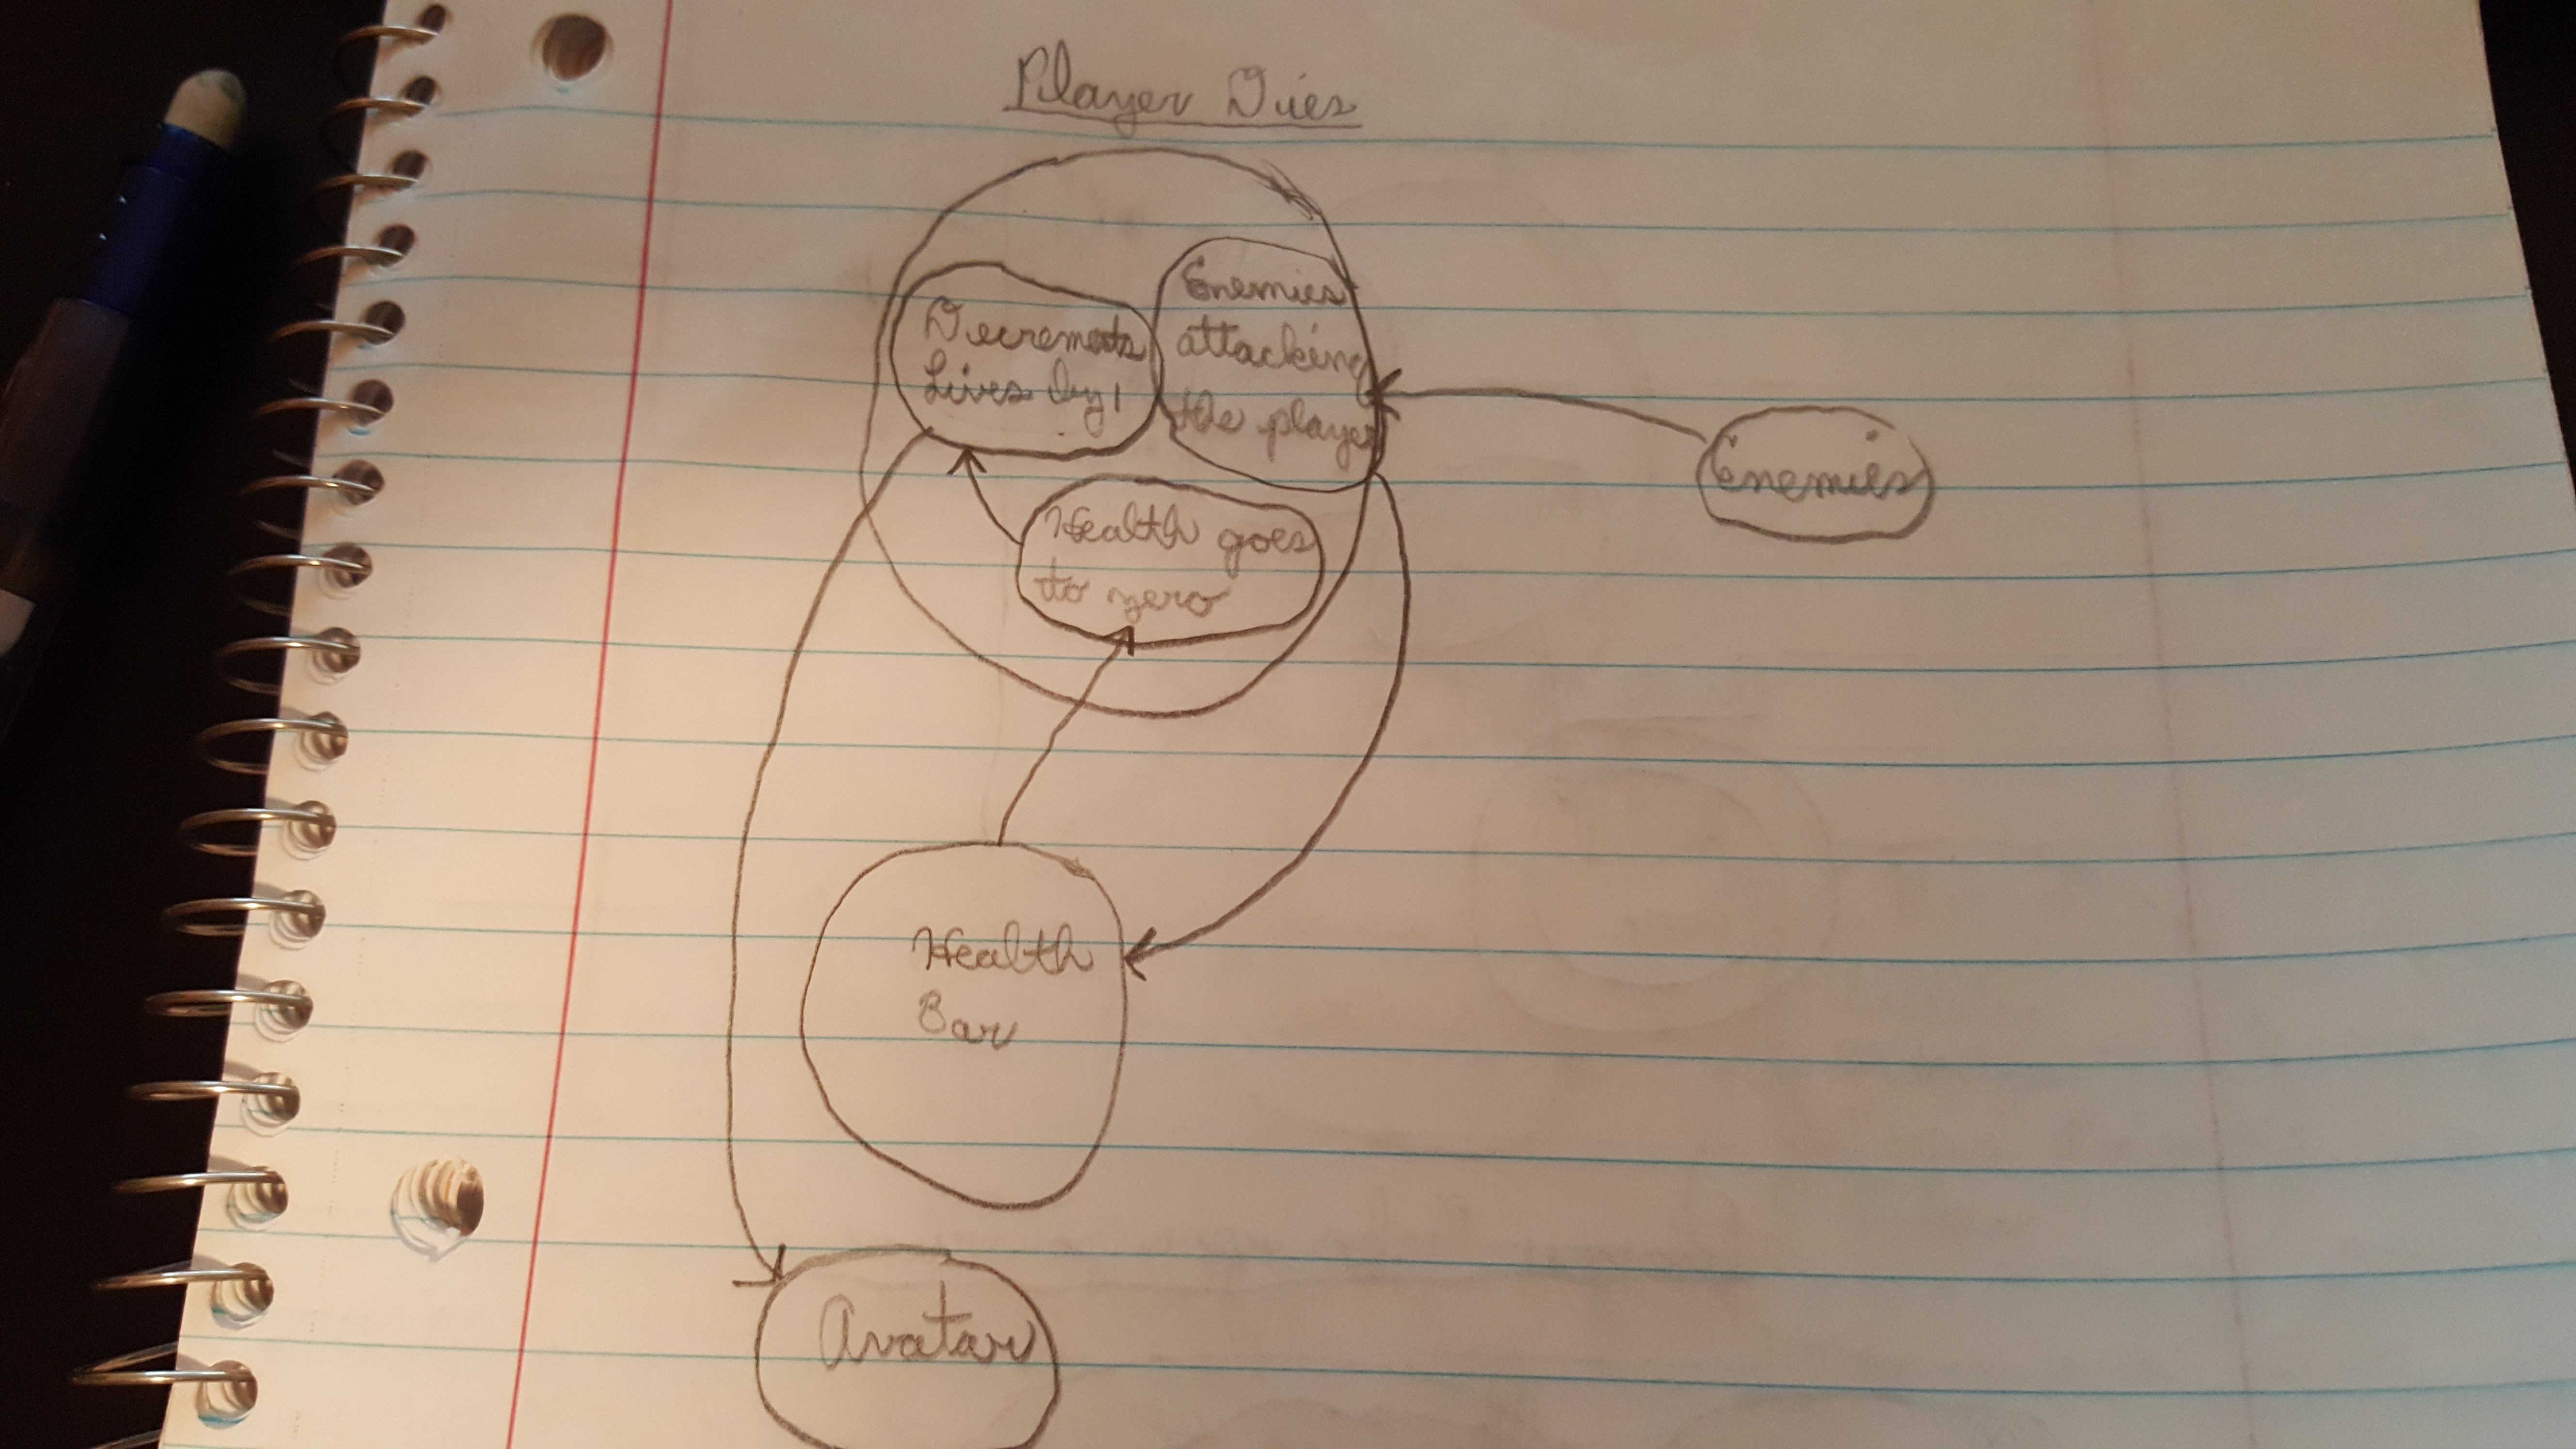 Player Dies
Decrements
Lives by 1
Enemies
attacking
the player
Enemies
Health goes
to zero
Health
Bar
Avatar